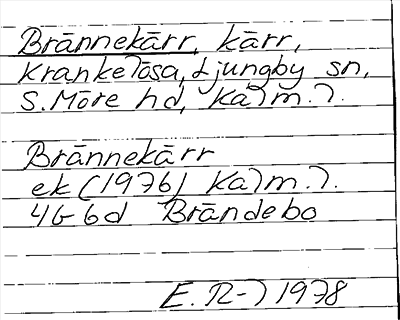 Brännekärr, kärr,
Krankelösa, Ljungby sn,
S. Möre hd, Kalm. l.
Brännekärr
ek (1976) Kalm. l.
4G 6d Brändebo
E. R-l 1978